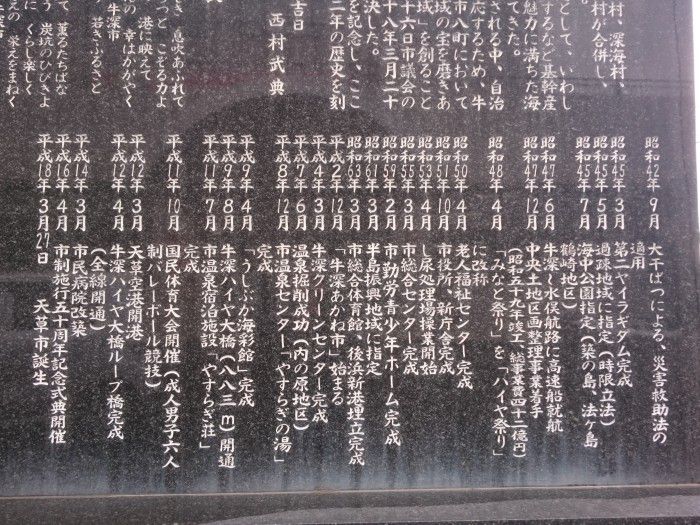 村、深海村、
村が合併し、
として、いわし
するなど基幹産
魅力に満ちた海
てきた。
される中、自治
応するため、牛
市八町において
域の宝を磨きあ
域」を創ること
十六日市議会の
十八年三月二十
決した。
を記念し、ここ
三年の歴史を刻
吉日
西村武典
き 息吹あふれて
つど こぞる力よ
港に映えて
の 幸はかがやく
若きふるさと
牛深市
て 薫るたちばな
くらし楽しく
う 炭坑のひびきよ
えの 栄えをまねく
昭和42年9月 大干ばつによる、災害救助法の
適用
昭和45年3月 第二ヤイラギダム完成
昭和45年5月 過疎地域に指定(時限立法)
昭和45年7月 海中公園指定(築の島、法ヶ島
鶴崎地区)
昭和47年6月 牛深〜水俣航路に高速船就航
昭和47年12月 中央土地区画整理事業着手
(昭和五十九年竣工、総事業費四十二億円)
昭和48年4月 「みなと祭り」を「ハイヤ祭り」
に改称
昭和50年4月 老人福祉センター完成
昭和51年10月 市役所、新庁舎完成
昭和53年4月 し尿処理場操業開始
昭和55年3月 市総合センター完成
昭和59年2月 市勤労青少年ホーム完成
昭和61年3月 半島振興地域に指定
昭和63年3月 市総合体育館、後浜新港埋立完成
平成2年12月 「牛深あかね市」始まる
平成4年3月 牛深クリーンセンター完成
平成7年6月 温泉掘削成功(内の原地区)
平成8年12月 市温泉センター「やすらぎの湯」
完成
平成9年4月 「うしぶか海彩館」完成
平成9年8月 牛深ハイヤ大橋(八八三m)開通
平成11年7月 市温泉宿泊施設「やすらぎ荘」
完成
平成11年10月 国民体育大会開催(成人男子六人
制バレーボール競技)
平成12年3月 天草空港開港
平成12年4月 牛深ハイヤ大橋ループ橋完成
(全線開通)
平成14年3月 市民病院改築
平成16年4月 市制施行五十周年記念式典開催
平成18年3月27日 天草市誕生